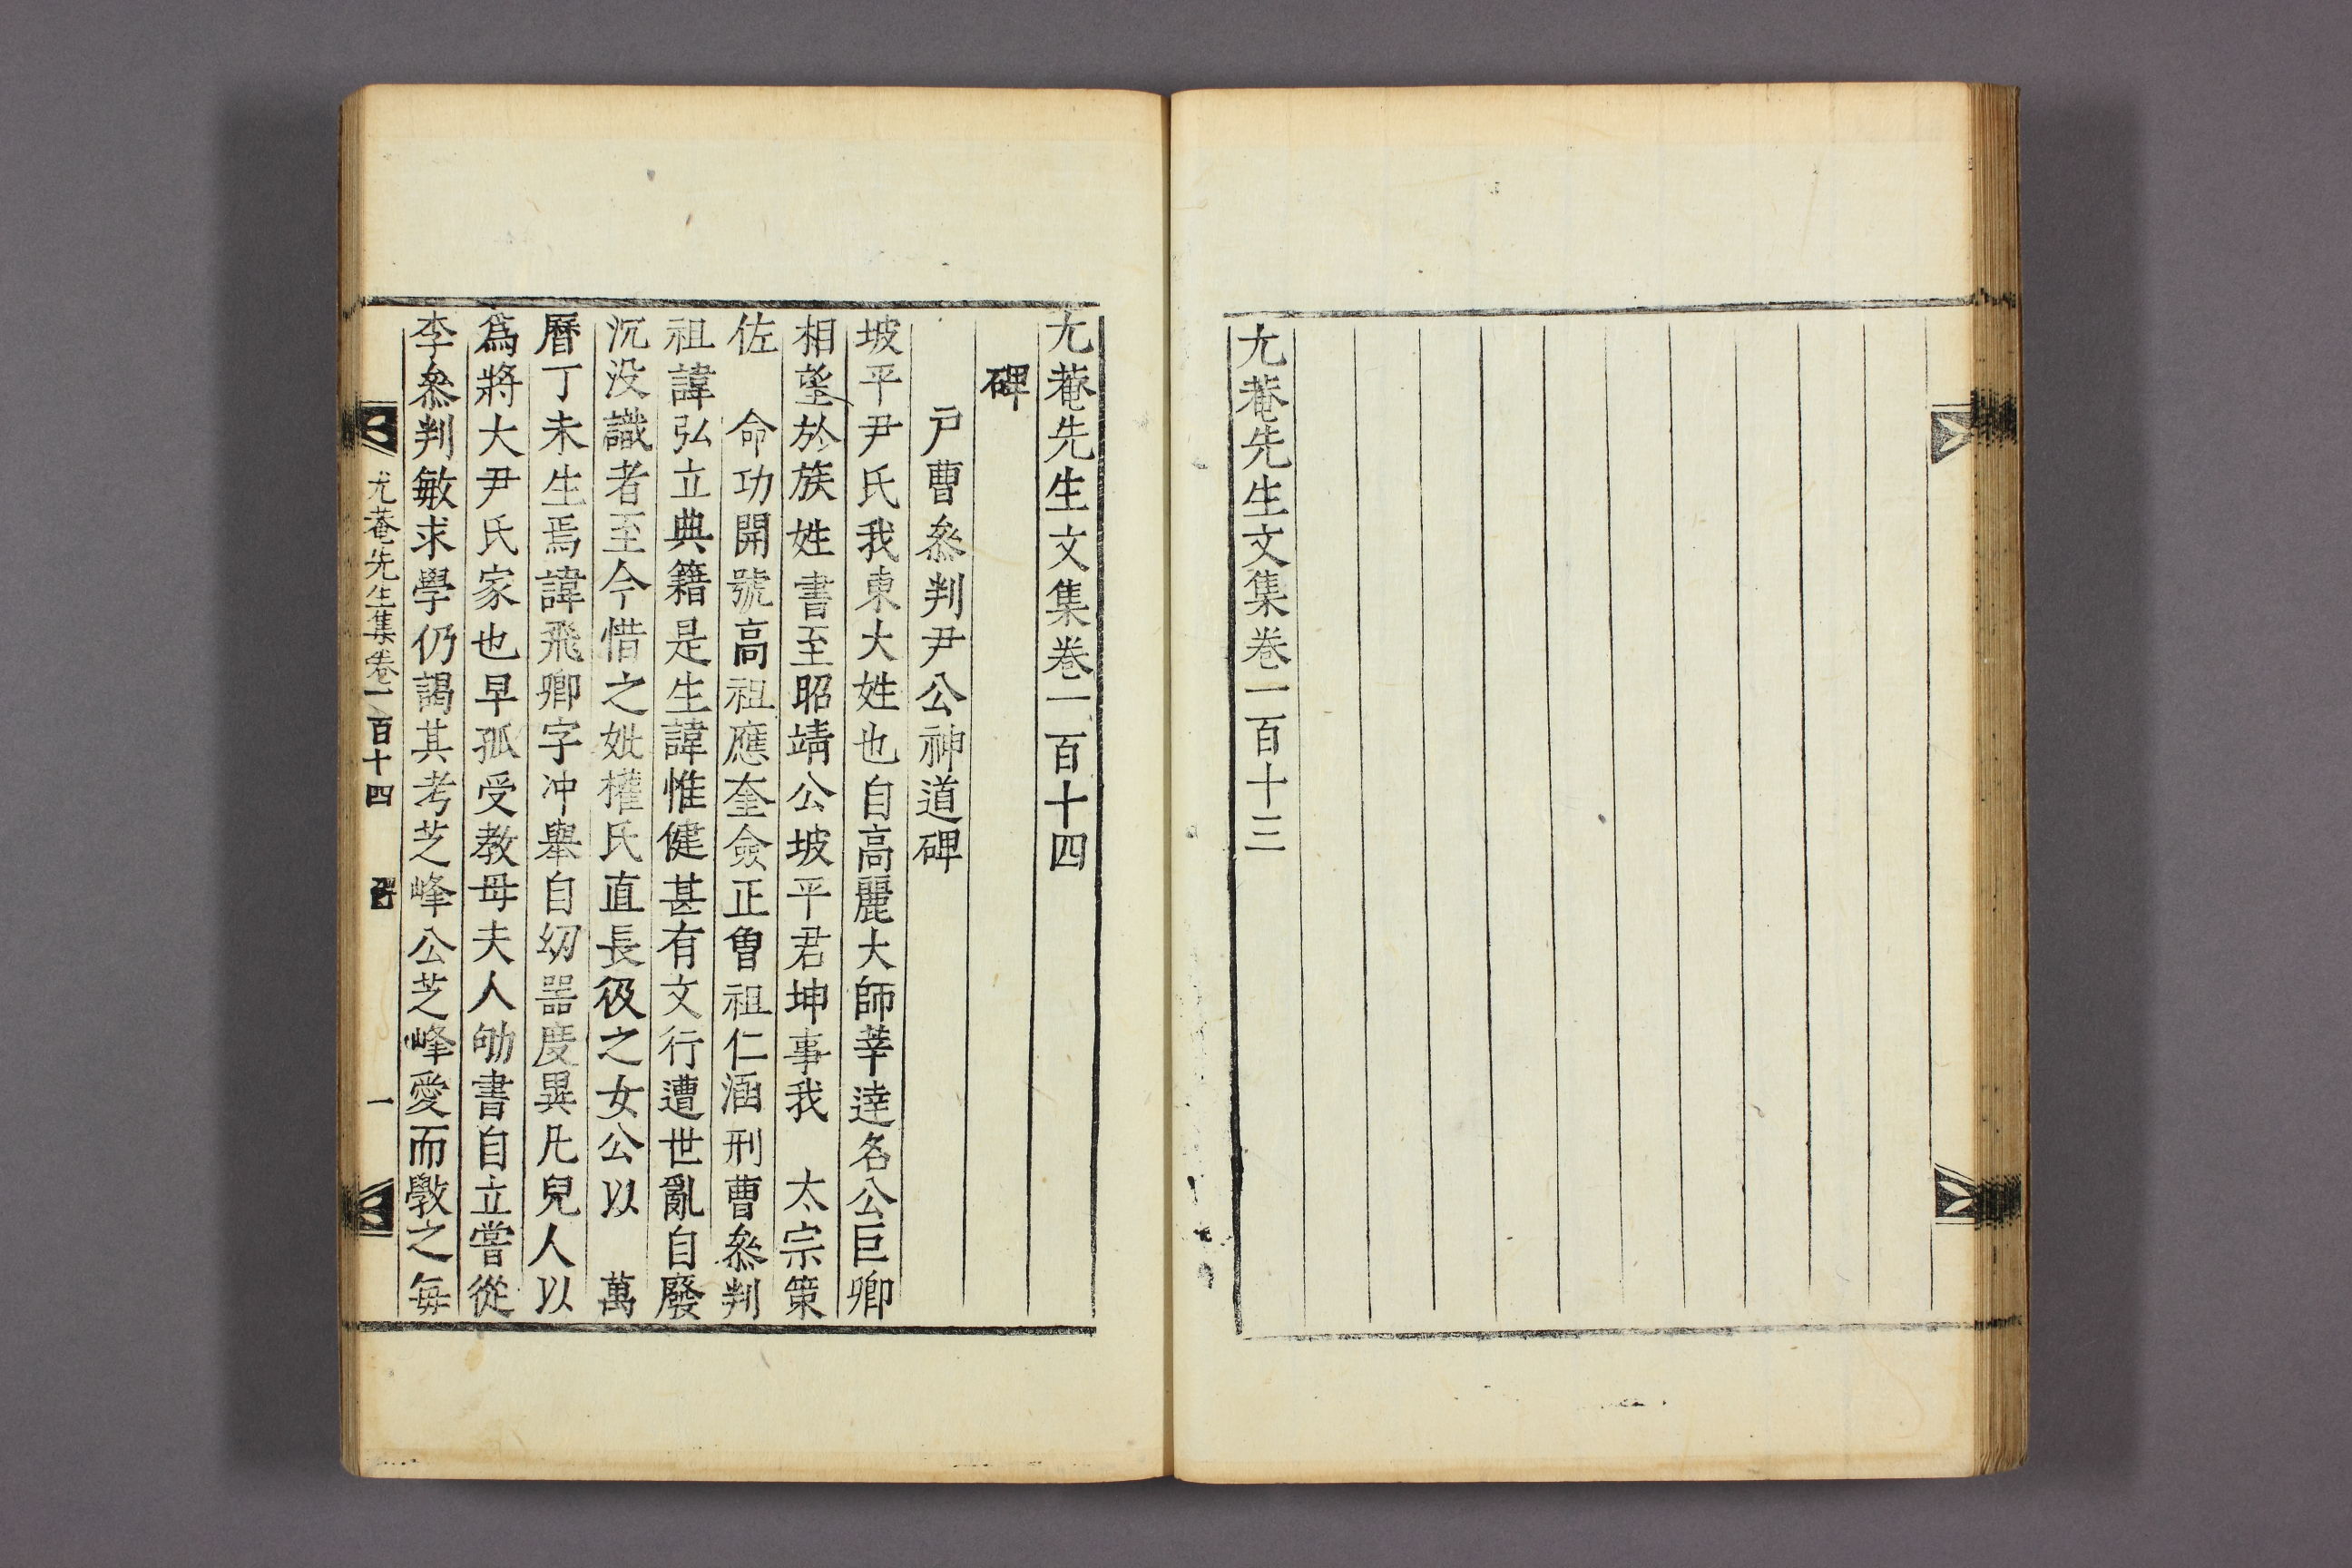 尤菴先生文集卷一百十三
尤菴先生文集卷一百十四
碑
戶曹叅判尹公神道碑
坡平尹氏我東大姓也自高麗大師莘逹名公巨卿
相望於族姓書至昭靖公坡平君坤事我　太宗策
佐　命功開號高祖應奎僉正曾祖仁涵刑曹叅判
祖諱弘立典籍是生諱惟健甚有文行遭世亂自廢
沉没識者至今惜之妣權氏直長伋之女公以　萬
曆丁未生焉諱飛卿字冲擧自幼器度異凡兒人以
爲將大尹氏家也早孤受教母夫人劬書自立嘗從
李叅判敏求學仍謁其考芝峰公芝峰愛而斅之每
尤菴先生集卷一百十四　碑　一